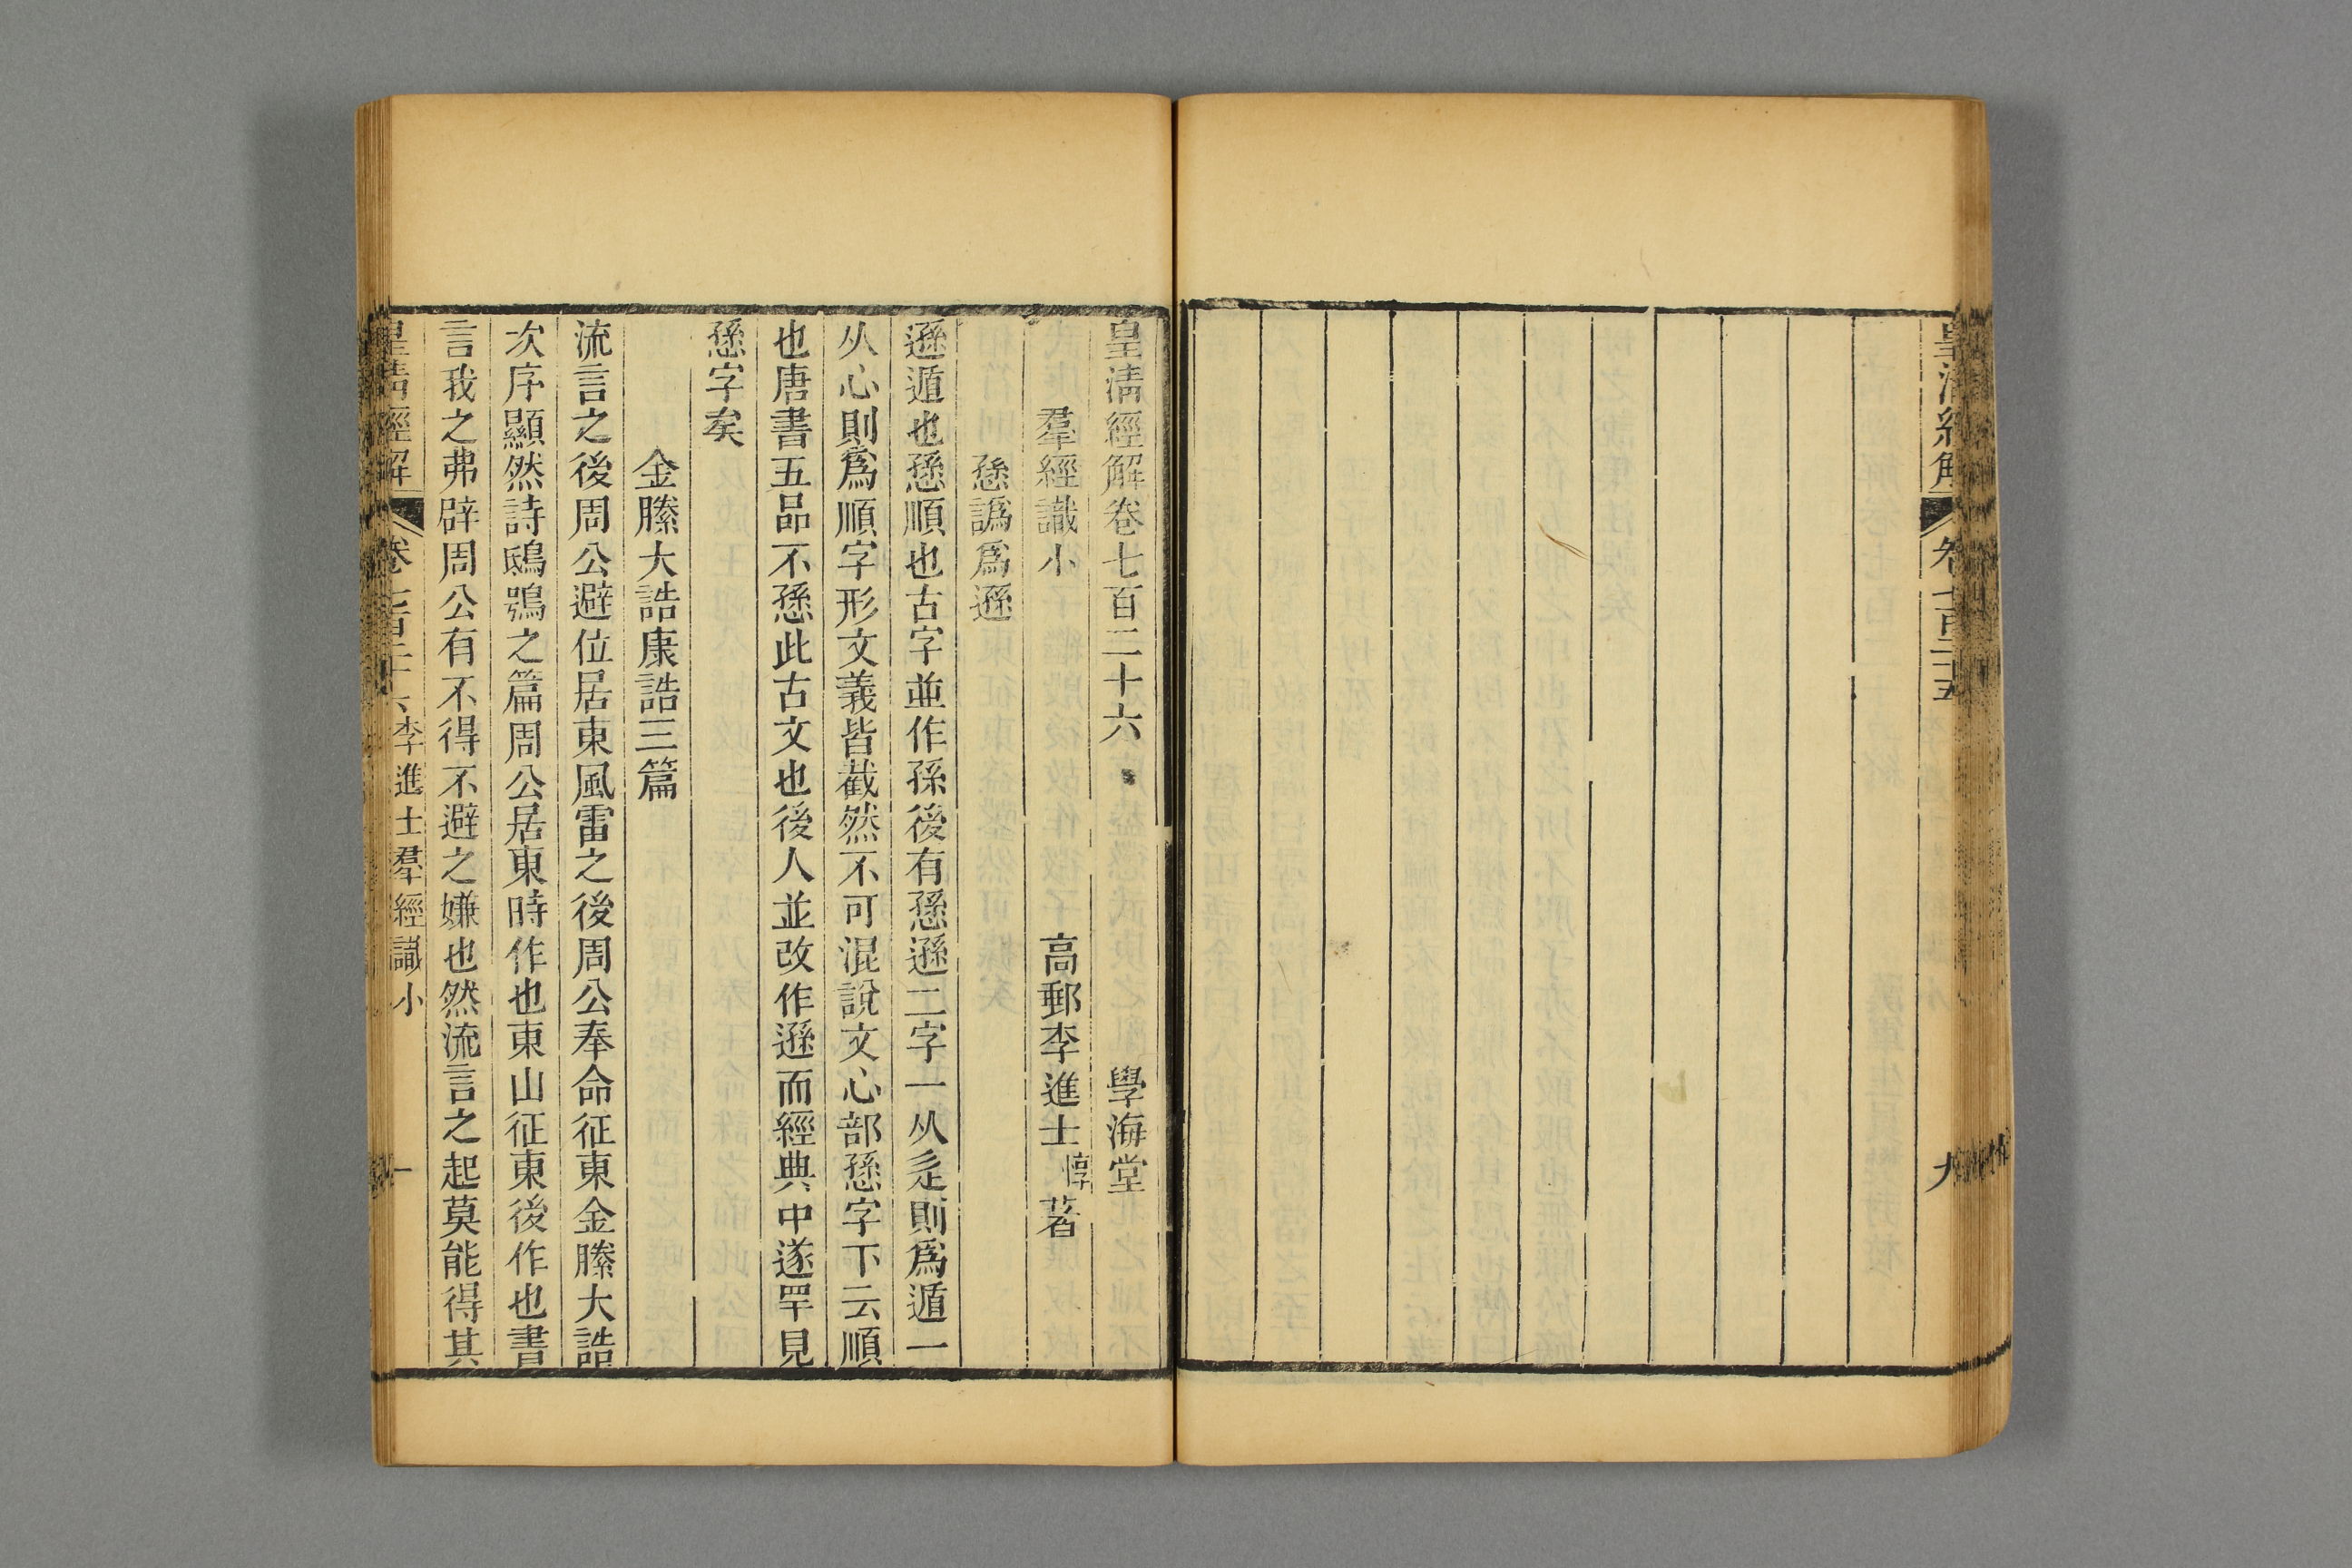 皇清經解
卷七百二十五
九
皇清經解卷七百二十六
學海堂
羣經識小
高郵李進士惇著
愻譌爲遜
遜遁也愻順也古字並作孫後有愻遜二字一从辵則爲遁一
从心則爲順字形文義皆截然不可混說文心部愻字下云順
也唐書五品不愻此古文也後人並改作遜而經典中遂罕見
愻字矣
金縢大誥康誥三篇
流言之後周公避位居東風雷之後周公奉命征東金縢大誥
次序顯然詩鴟鴞之篇周公居東時作也東山征東後作也書
言我之弗辟周公有不得不避之嫌也然流言之起莫能得其
皇清經解
卷七百二十六
李進士羣經識小
一